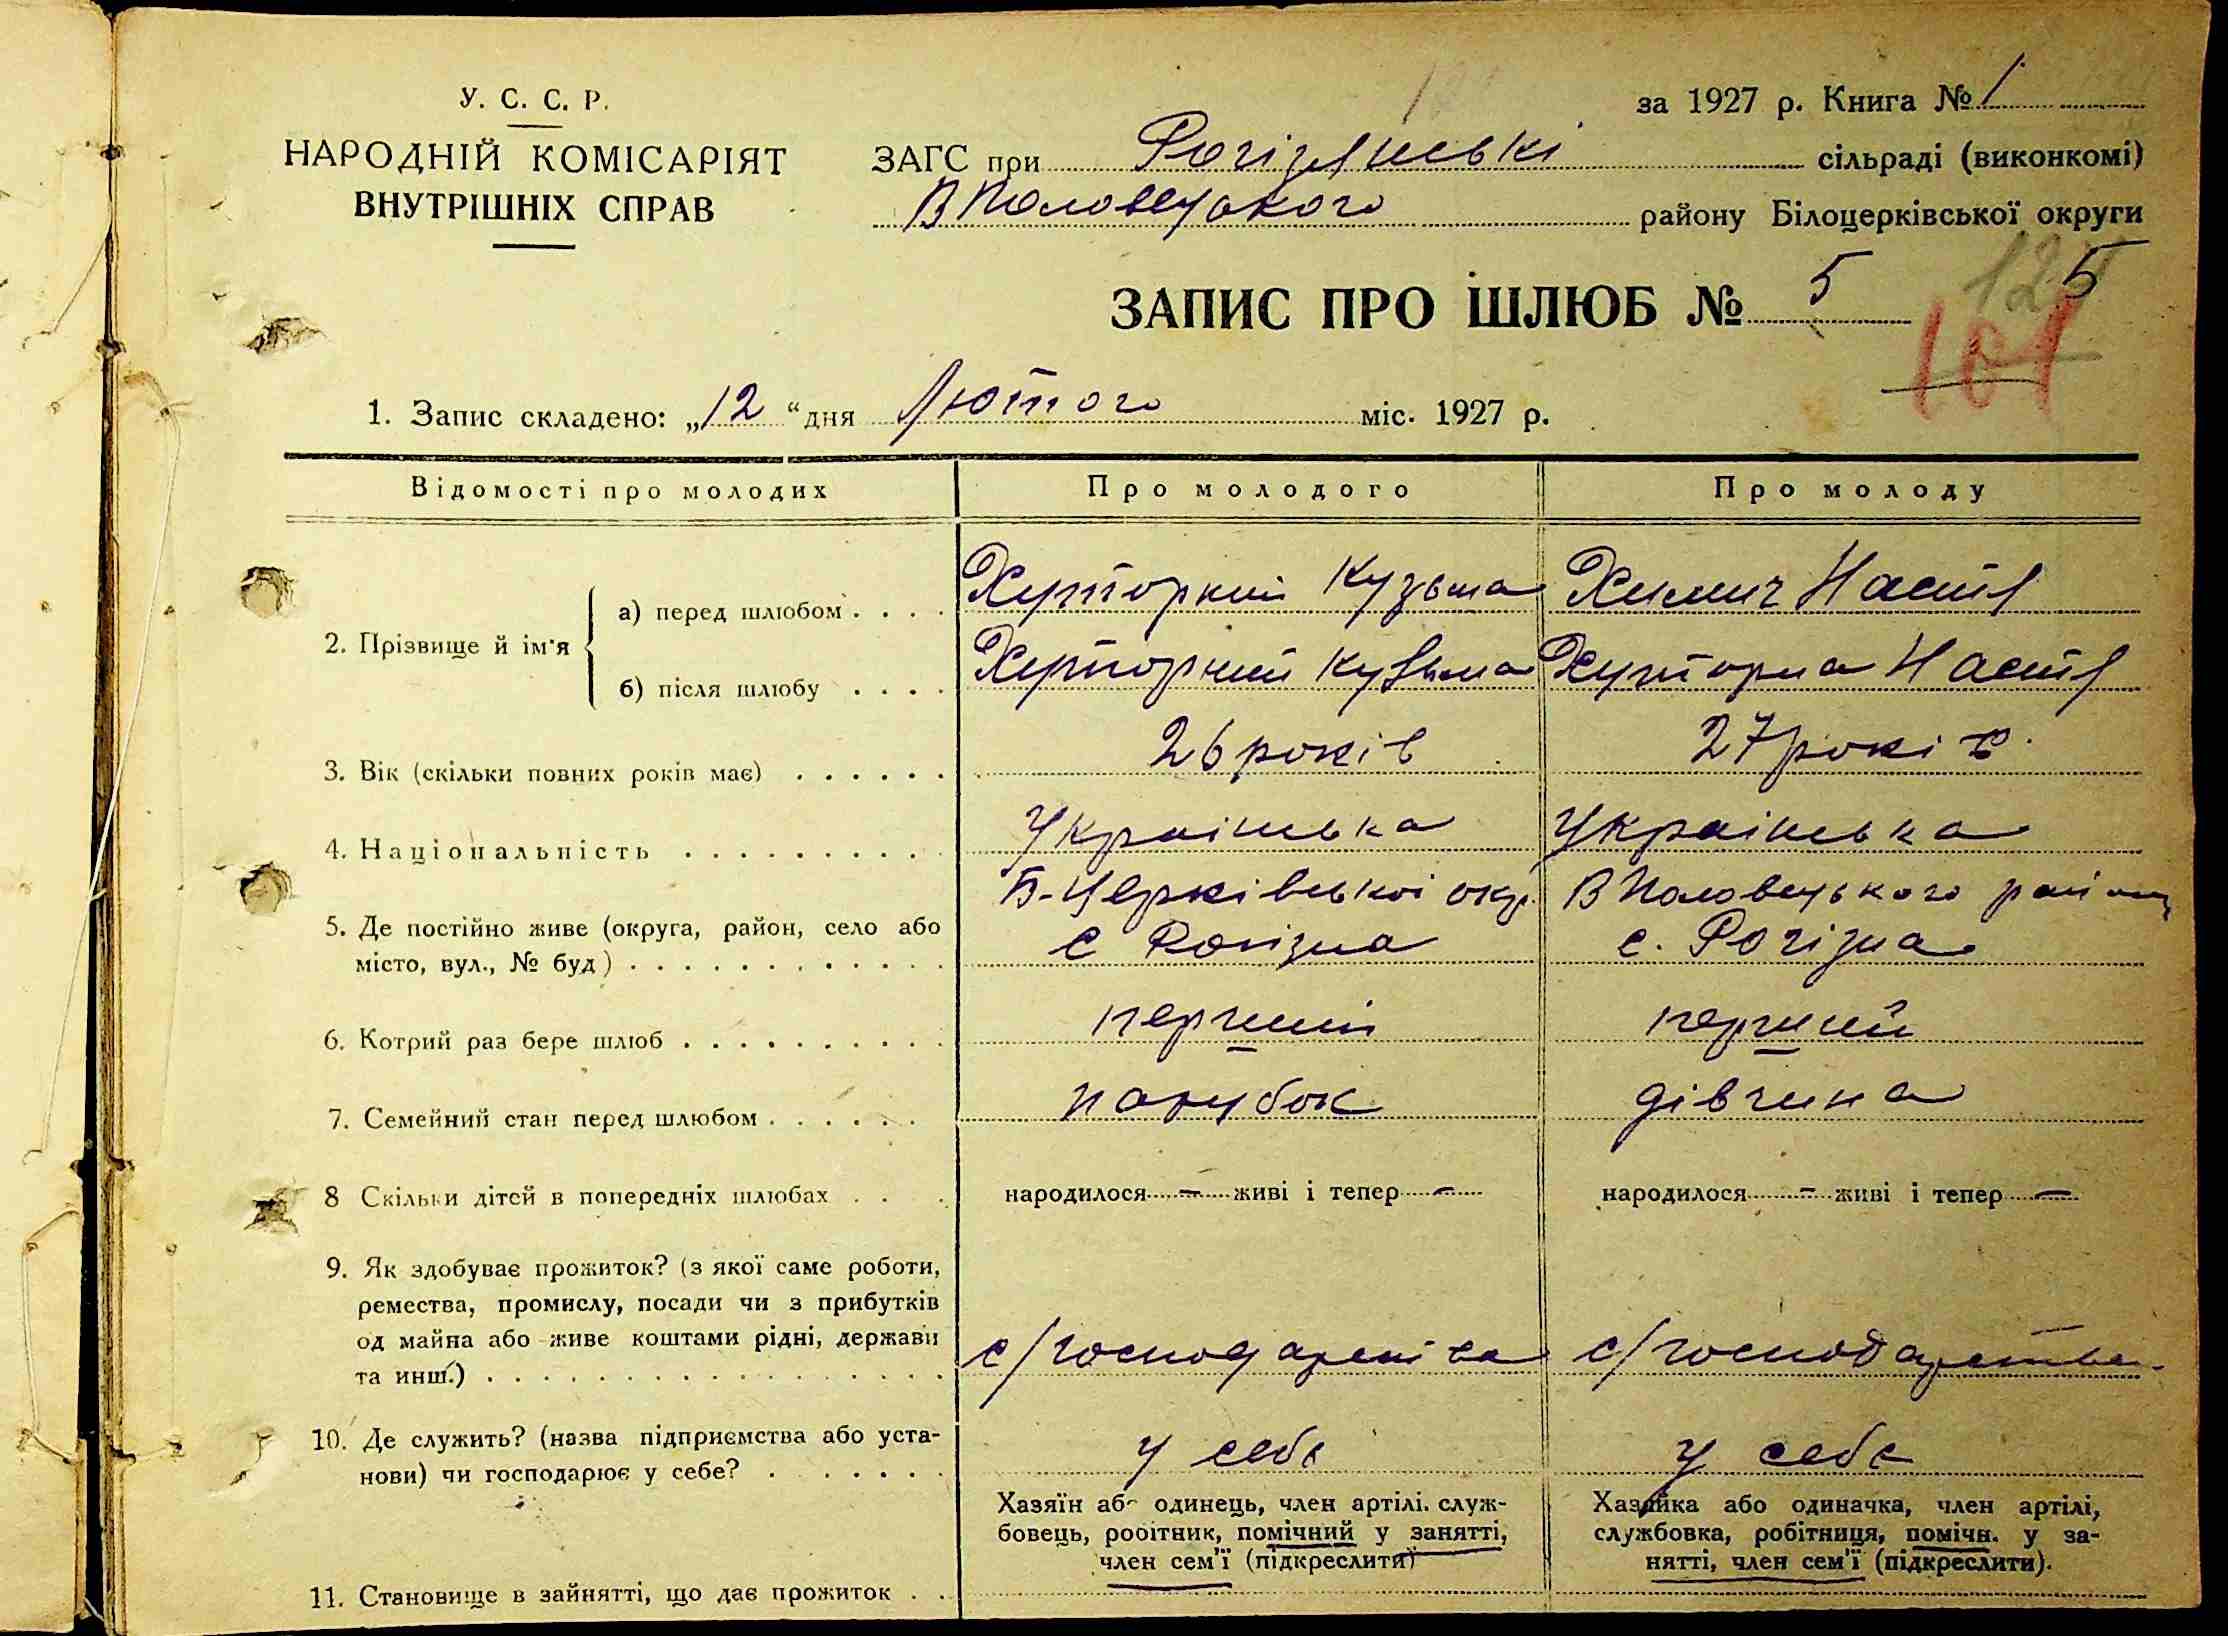 У. С. С. Р.
НАРОДНІЙ КОМІСАРІЯТ
ВНУТРІШНІХ СПРАВ
за 1927 р. Книга № 1
ЗАГС при Рогізянські сільраді (виконкомі)
В Половецького району Білоцерківської округи
ЗАПИС ПРО ШЛЮБ № 5
125
101
1. Запис складено: „12“ дня Лютого міс. 1927 р.
Відомості про молодих Про молодого Про молоду
2. Прізвище й ім'я
а) перед шлюбом . . . . Хуторний Кузьма Химич Настя
б) після шлюбу . . . . Хуторний Кузьма Хуторна Настя
3. Вік (скільки повних років має) . . . . . . 26 років 27 років
4. Національність . . . . . . . . . Українська Українська
5. Де постійно живе (округа, район, село або Б-Церківської окр. В Половецького району
місто, вул., № буд) . . . . . . . . . . . . с Рогізна с. Рогізна
6. Котрий раз бере шлюб . . . . . . . . . . перший перший
7. Семейний стан перед шлюбом . . . . . . парубок дівчина
8 Скільки дітей в попередніх шлюбах . . . народилося – живі і тепер – народилося – живі і тепер –
9. Як здобуває прожиток? (з якої саме роботи,
ремества, промислу, посади чи з прибутків
од майна або живе коштами рідні, держави
та инш.) . . . . . . . . . . . . . . . . . с/господарства с/господарства
10. Де служить? (назва підприємства або уста-
нови) чи господарює у себе? . . . . . . у себе у себе
Хазяїн або одинець, член артілі. служ-
бовець, робітник, помічний у занятті,
член сем'ї (підкреслити)
Хазяйка або одиначка, член артілі,
службовка, робітниця, помічн. у за-
нятті, член сем'ї (підкреслити).
11. Становище в зайнятті, що дає прожиток . .